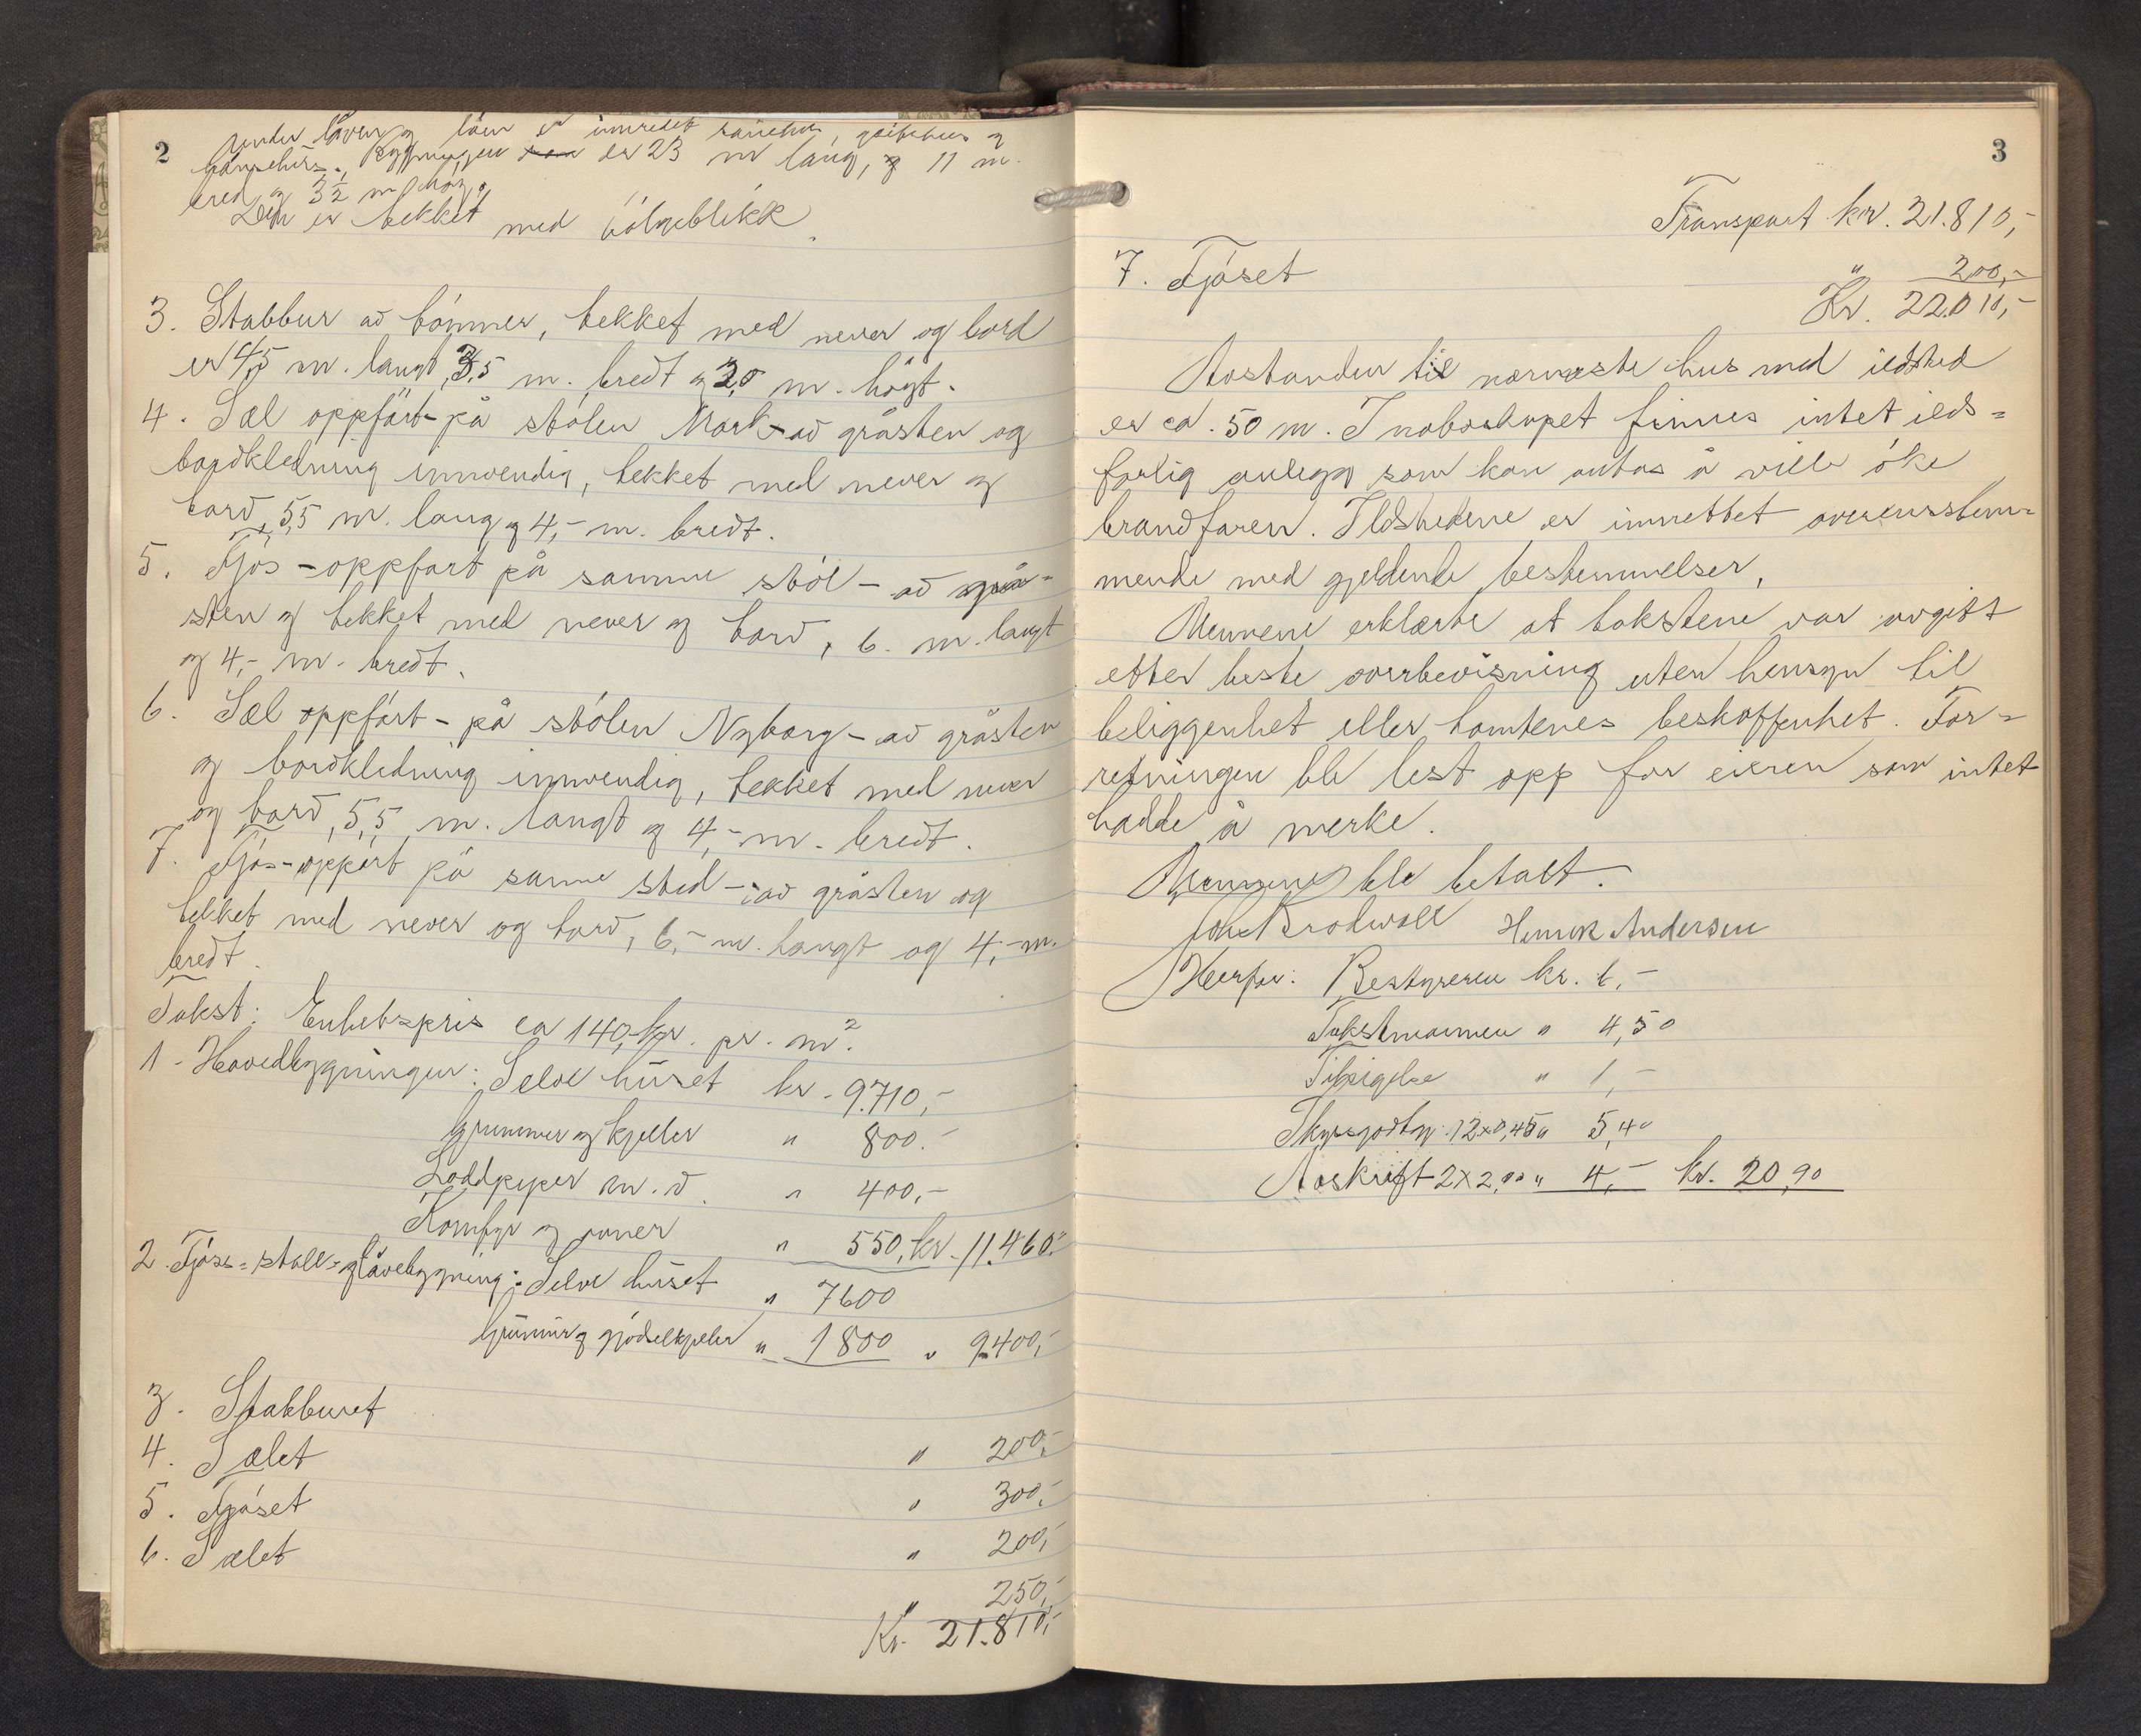 2
under låven og löen er innredet sauehus, geitehus og
hønsehus. Bygningen er 23 m lang, 11 m.
bred og 3 1/2 m høg.
Den er tekket med bölgeblikk.
3. Stabbur av tömmer, tekket med never og bord
er 4,5 m. langt 3,5 m. bredt og 2,0 m. högt.
4. Sæl oppfört på stölen Mark - av gråsten og
bordkledning innvendig, tekket med never og
bord, 5,5 m. lang og 4,- m. bredt.
5. Fjös - oppfört på samme stöl - av grå-
sten og tekket med never og bord, 6. m. langt
og 4,- m. bredt.
6. Sæl oppfört - på stölen Nyborg - av gråsten
og bordkledning innvendig, tekket med never
og bord, 5,5 m. langt og 4,- m. bredt.
7. Fjös - oppört på samme sted - av gråsten og
tekket med never og bord, 6,- m. langt og 4,- m.
bredt.
Takst: Enhetspris ca 140,- kr. pr. m².
1 - Hovedbygningen: Selve huset kr. 9.710,-
Grunnmur og kjeller " 800.-
Loddpiper m.v. " 400,-
Komfyr og ovner " 550, kr. 11.460.-
2. Fjöss- stall- og låvebygning: Selve huset " 7600
Grunnmur og gjödselkjeller " 1800 " 9.400,-
3. Stabburet
4. Sælet " 200,-
5. Fjöset " 300,-
6. Sælet " 200,-
" 250,-
Kr. 21.810,-
3
Transport kr. 21.810,-
7. Fjöset " 200,-
Kr. 22.010,-
Avstanden til nærmeste hus med ildsted
er ca. 50 m. I naboskapet finnes intet ilds-
farlig anlegg som kan antas å ville öke
brandfaren. Ildstedene er innrettet overensstem-
mende med gjeldende bestemmelser.
Mennene erklærte at takstene var avgitt
etter beste overbevisning uten hensyn til
beliggenhet eller tomtenes beskaffenhet. For-
retningen ble lest opp for eieren som intet
hadde å merke.
Mennene ble betalt.
Henrik Andersen
Herfor: Bestyreren kr. 6,-
Takstmannen " 4,50
" 1,-
Skyssgodtgj. 12x0,45 " 5,40
Avskrift 2x2,00 " 4,- kr. 20,90